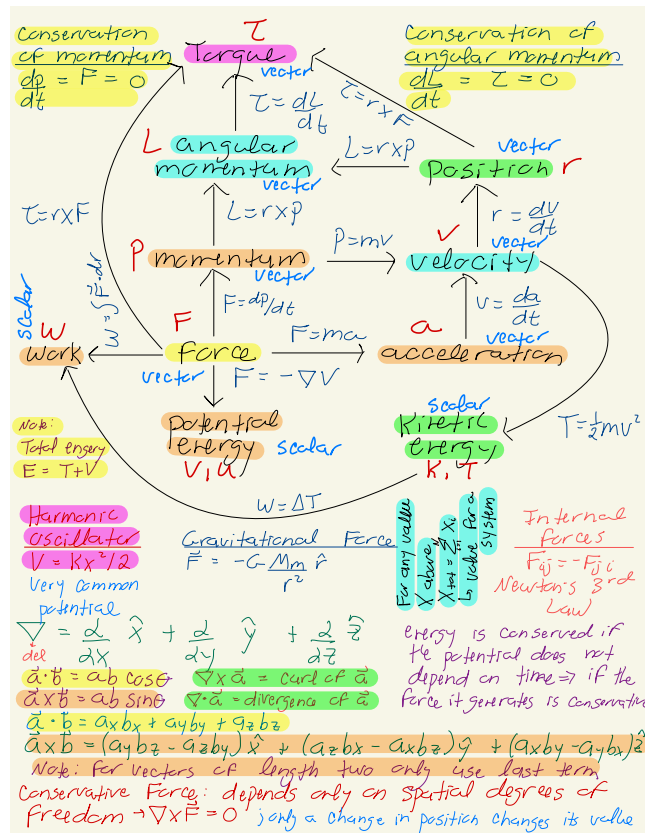 Conservation
of momentum
dp/dt = F = 0
τ
Torque
vector
Conservation of
angular momentum
dL/dt = τ = 0
τ = dL/dt
τ = r x F
L angular
momentum
vector
L = r x p
vector
position r
τ = r x F
L = r x p
r = dv/dt
P momentum
vector
P = mv
v
vector
velocity
F = dp/dt
v = da/dt
scalar
W
work
W = ∫F⃗·dr
F
force
vector
F = ma
a
vector
acceleration
F = -∇V
potential
energy
scalar
V, u
scalar
kinetic
energy
K, T
T = ½mv²
Note:
Total engery
E = T+V
W = ΔT
Harmonic
oscillator
V = Kx²/2
very common
potential
Gravitational Force
F⃗ = -G Mm/r² r̂
For any value
X above,
X tot = Σ Xi
↳ value for a
system
Internal
forces
Fij = -Fji
Newton's 3rd
Law
∇ = d/dx x̂ + d/dy ŷ + d/dz ẑ
del
a⃗·b⃗ = ab cosθ
∇ x a⃗ = curl of a⃗
a⃗xb⃗ = ab sinθ
∇·a⃗ = divergence of a⃗
a⃗·b⃗ = axbx + ayby + azbz
energy is conserved if
the potential does not
depend on time ⇒ if the
force it generates is conservative
a⃗xb⃗ = (aybz - azby)x̂ + (azbx - axbz)ŷ + (axby - aybx)ẑ
Note: for vectors of length two only use last term
Conservative Force: depends only on spatial degrees of
freedom → ∇xF⃗ = 0 ; only a change in position changes its value